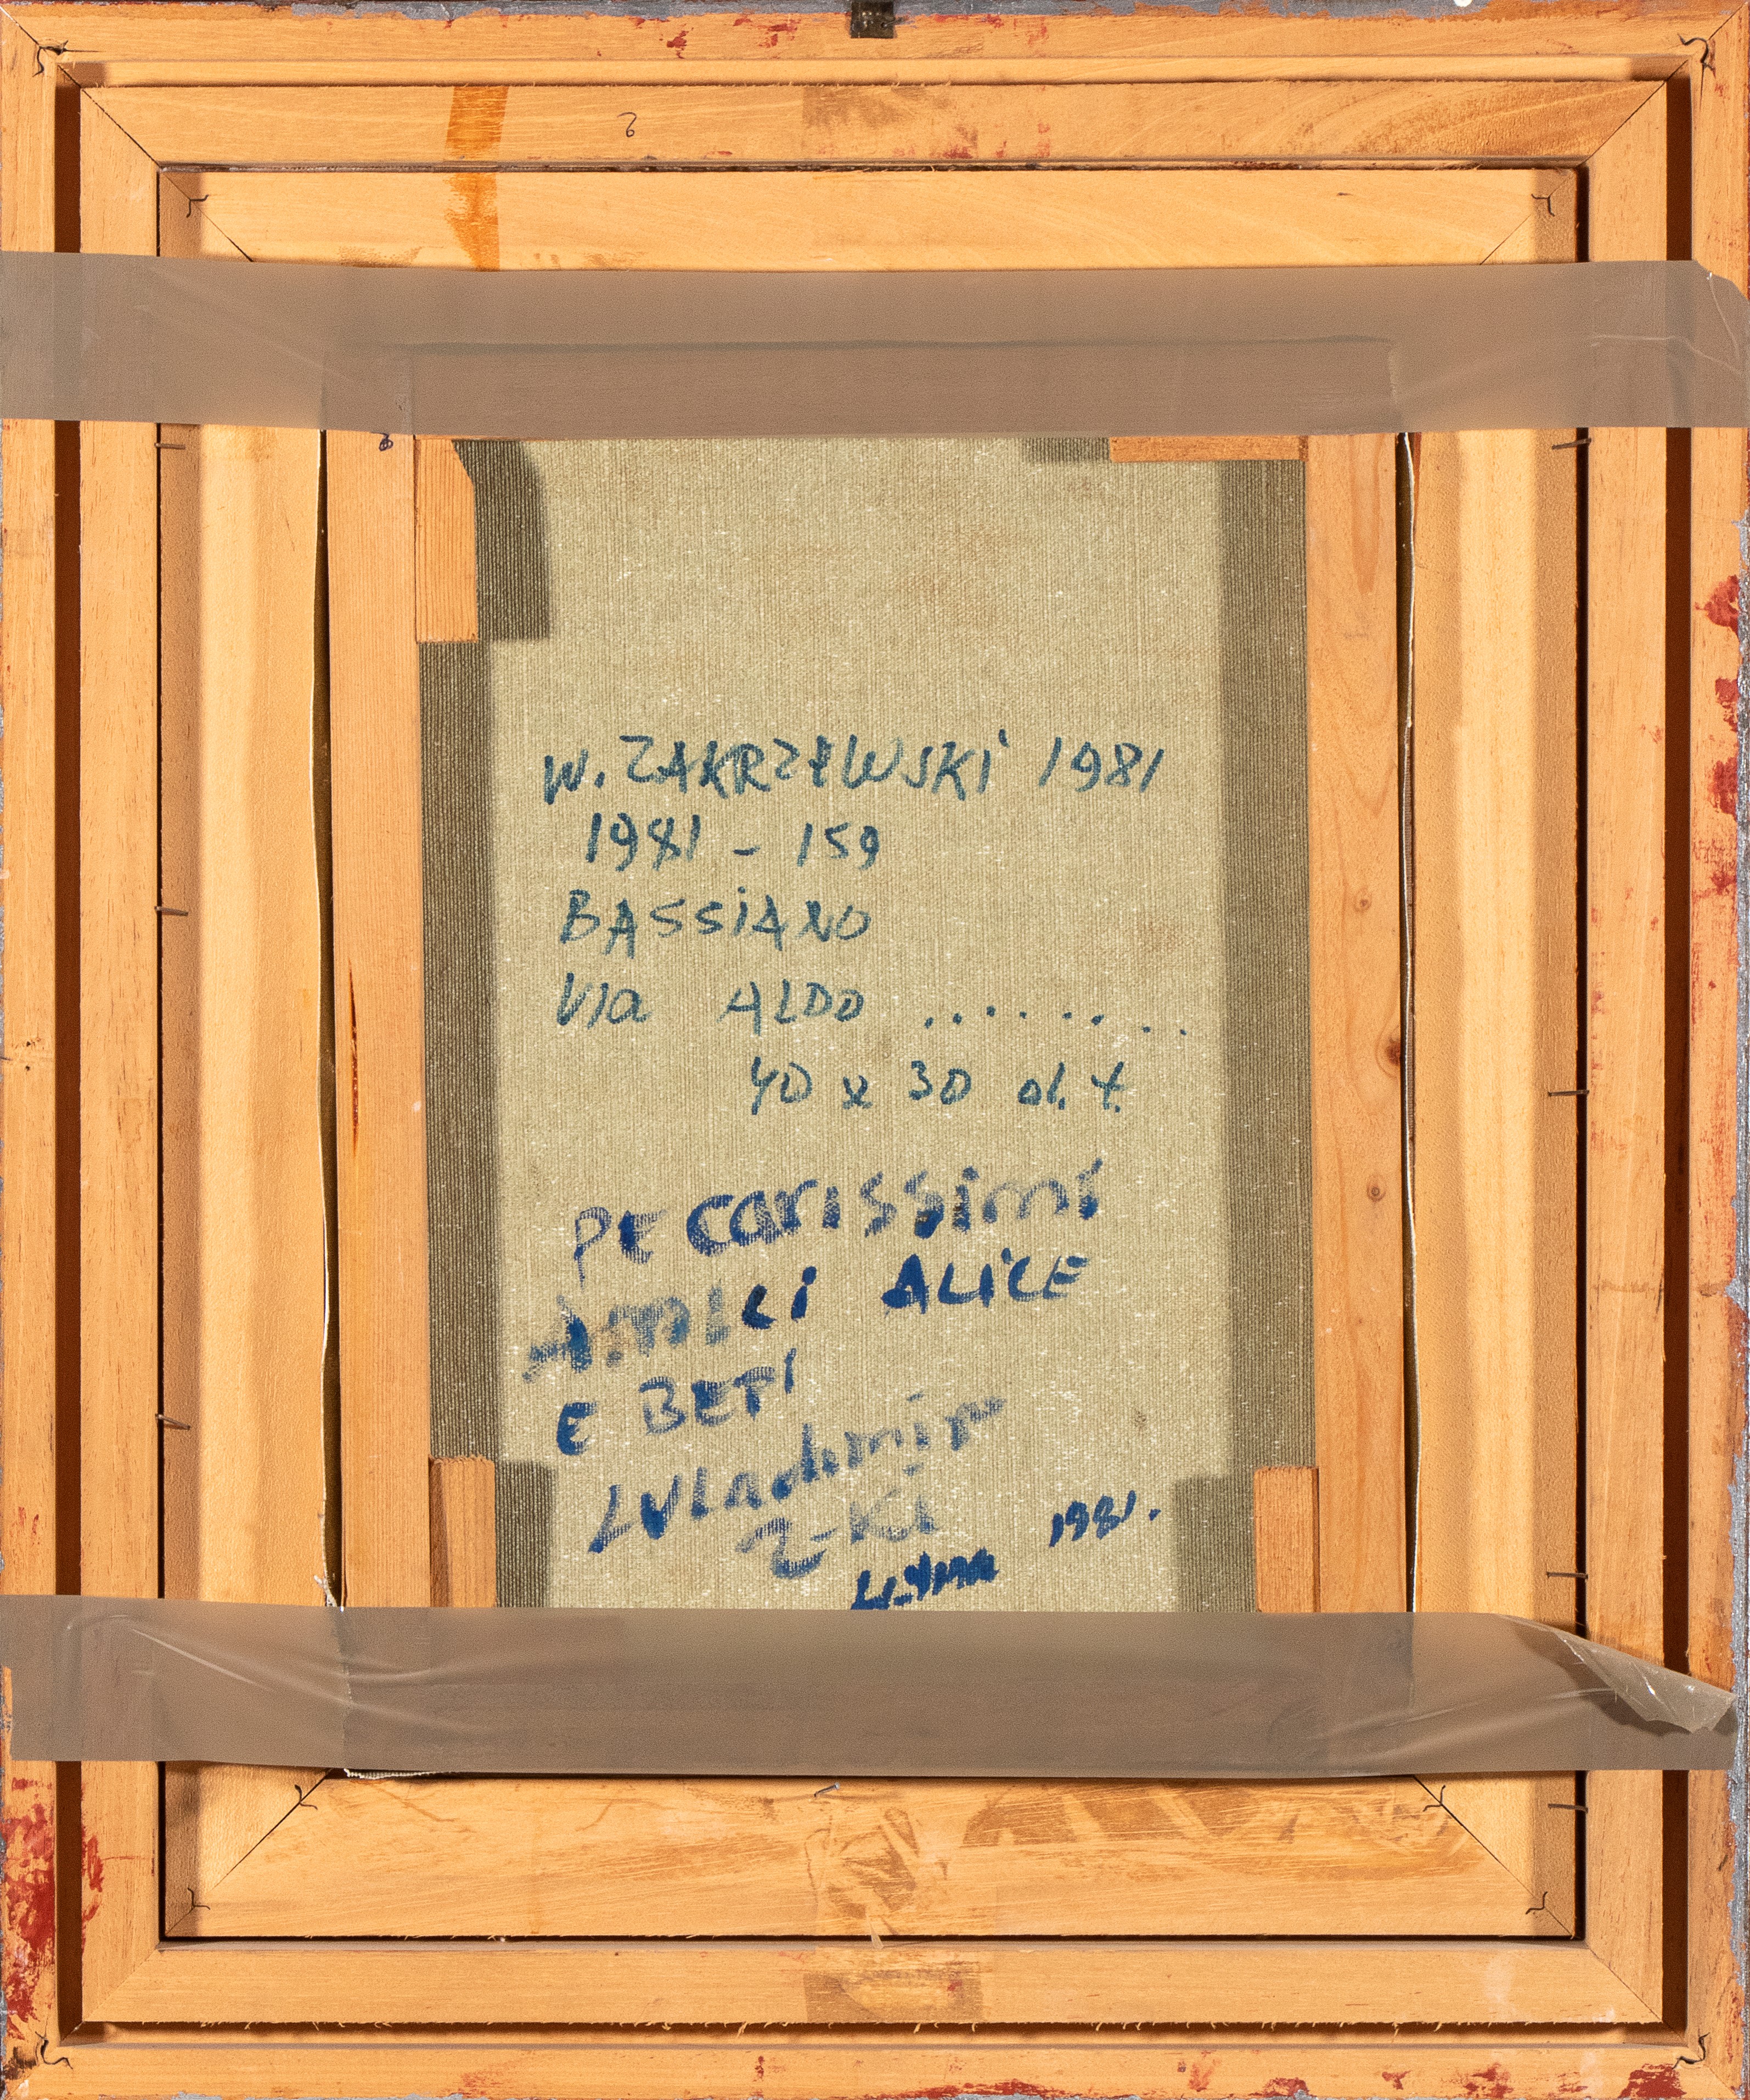 6
W. ZAKRZEWSKI 1981
1981 - 159
BASSIANO
Via ALDO .........
40 x 30 ol. t.
PE carissimi
AMICI ALICE
E BEPI
WLadimir
Z-KI
1981.